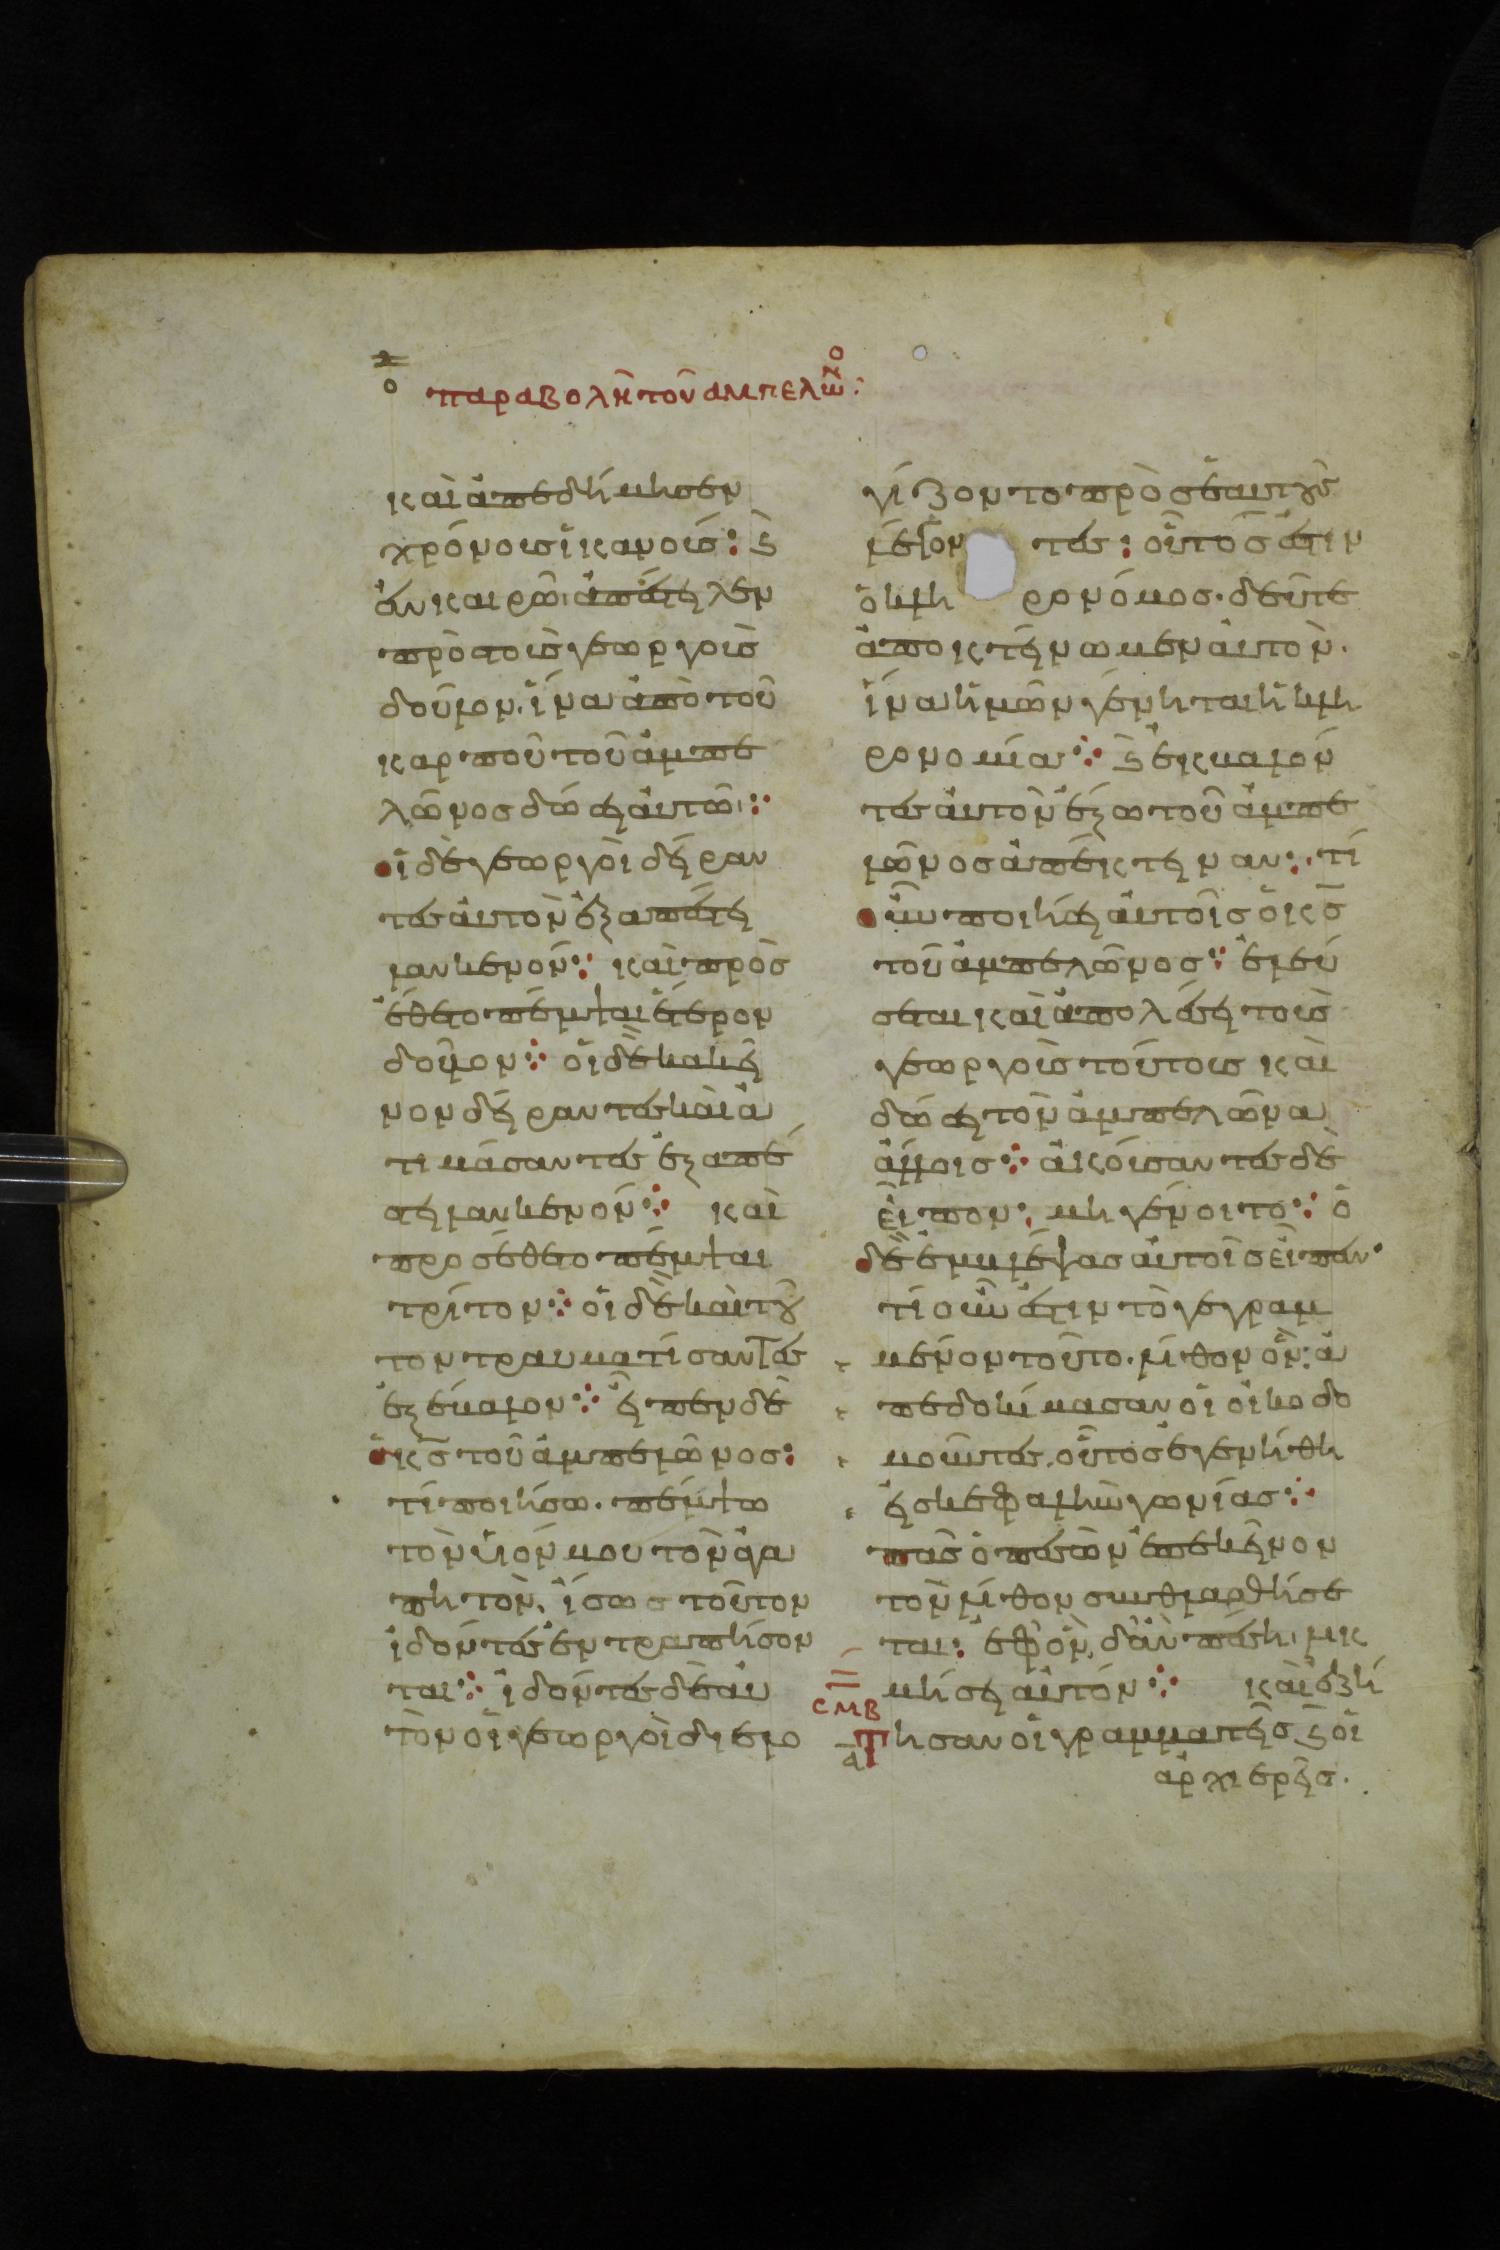 ο παραβολὴ τοῦ ἀμπελῶνο:
καὶ ἀπεδήμησεν
χρόνοις ἱκανοῖς: ϗ
ἐν καιρῶ, ἀπέστειλεν
πρὸς τοὺς γεωργοὺς
δοῦλον, ἵνα ἀπὸ τοῦ
καρποῦ τοῦ ἀμπε
λῶνος δώσει αὐτῶ:
οἱ δὲ γεωργοὶ δείραν
τες αὐτὸν ἐξαπέστει
λαν κενόν: καὶ προσ
έθετο πέμψαι ἕτερον
δοῦλον: οἱ δὲ κακεῖ
νον δείραντες καὶ ἀ
τιμάσαντες ἐξαπέ
στειλαν κενόν: καὶ
προσέθετο πέμψαι
τρίτον: οἱ δὲ καὶ τοῦ
τον τραυματίσαντες
ἐξέβαλον: εἶπεν δὲ
ὁ κς τοῦ ἀμπελῶνος:
τί ποιήσω. πέμψω
τὸν υἱόν μου τὸν ἀγα
πητὸν, ἴσως τοῦτον
ἰδόντες ἐντραπήσον
ται: ἰδόντες δὲ αὐ
τὸν οἱ γεωργοὶ διελο
γίζοντο πρὸς ἑαυτοὺς
λέγοντες: οὗτός ἐστιν
ὁ κληρονόμος. δεῦτε
ἀποκτείνωμεν αὐτὸν.
ἵνα ἡμῶν γένηται ἡ κλη
ρονομία: ϗ ἐκβαλόν
τες αὐτὸν ἔξω τοῦ ἀμπε
λῶνος ἀπέκτειναν: τί
οὖν ποιήσει αὐτοῖς ὁ κς
τοῦ ἀμπελῶνος: ἐλεύ
σεται καὶ ἀπολέσει τοὺς
γεωργοὺς τούτους καὶ
δώσει τὸν ἀμπελῶνα
ἄλλοις: ἀκούσαντες δὲ
εἶπον, μὴ γένοιτο: ὁ
δὲ ἐμβλέψας αὐτοῖς εἶπεν·
τί οὖν ἐστιν τὸ γεγραμ
μένον τοῦτο. λίθον ὃν ἀ
πεδοκίμασαν οἱ οἰκοδο
μοῦντες, οὗτος ἐγενήθη
εἰς κεφαλὴν γωνίας:
πᾶς ὁ πεσὼν ἐπ' ἐκεῖνον
τὸν λίθον συνθλασθήσε
ται: ἐφ' ὃν δ' ἂν πέση, λικ
μήσει αὐτόν: καὶ ἐζή
ϲμβ
τησαν οἱ γραμματεῖς ϗ οἱ
ἀρχιερεῖς.